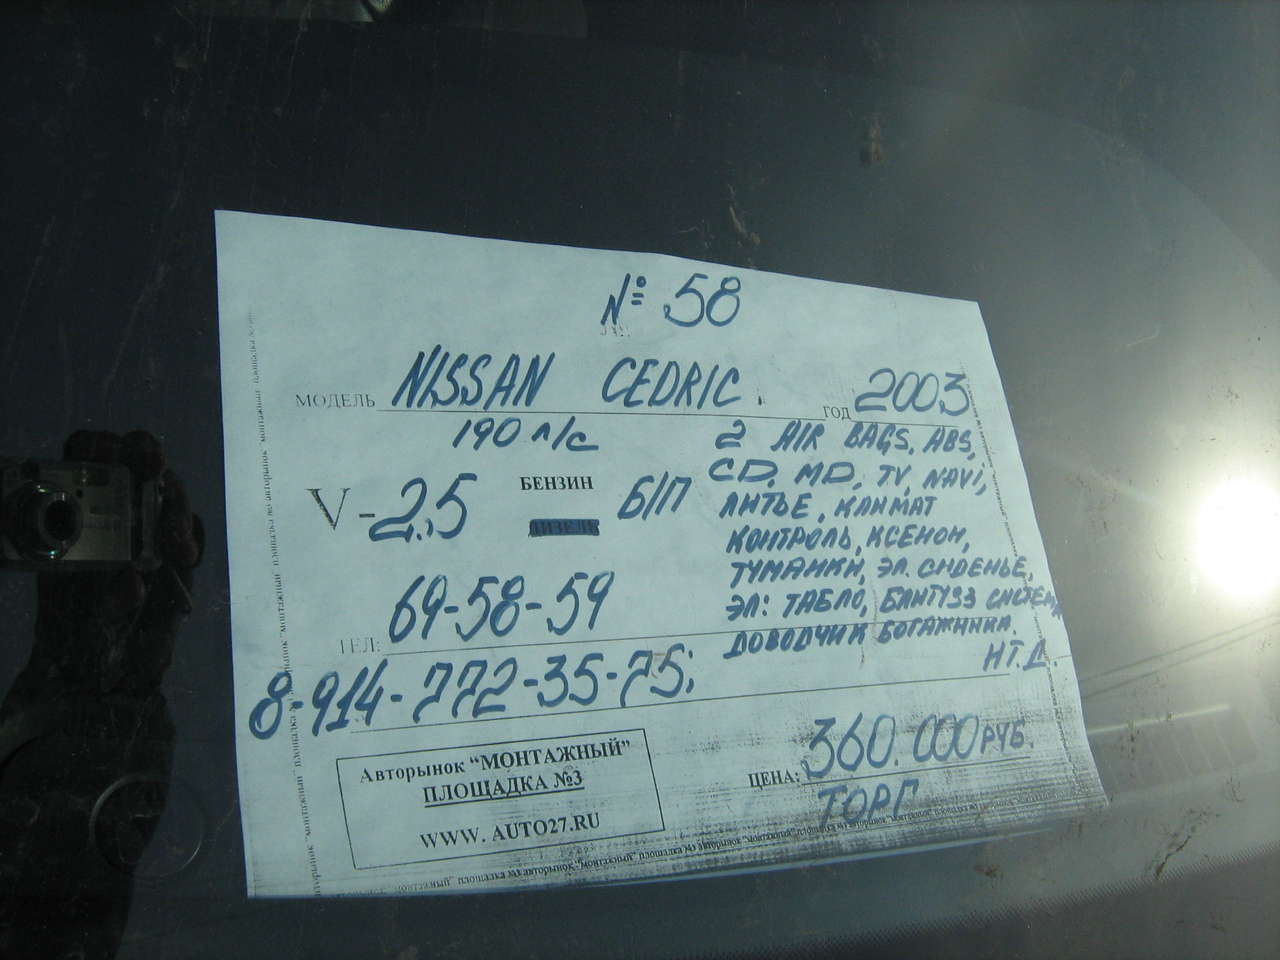 № 58
МОДЕЛЬ NISSAN CEDRIC. ГОД 2003
190 л/с
V-2,5 БЕНЗИН ДИЗЕЛЬ Б/П
2 AIR BAGS, ABS,
CD, MD, TV, NAVi,
ЛИТЬЕ, КЛИМАТ
КОНТРОЛЬ, КСЕНОН,
ТУМАНКИ, ЭЛ. СИДЕНЬЕ,
ЭЛ: ТАБЛО, БЛИТУЗЗ СИСТЕМА
ДОВОДЧИК БОГАЖНИКА.
ИТ.Д.
ТЕЛ: 69-58-59
8-914-772-35-75;
Авторынок "МОНТАЖНЫЙ"
ПЛОЩАДКА №3
WWW. AUTO27.RU
ЦЕНА: 360.000 РУБ.
ТОРГ
авторынок "монтажный" площадка №3 авторынок "монтажный" площадка №3 авторынок "монтажный"